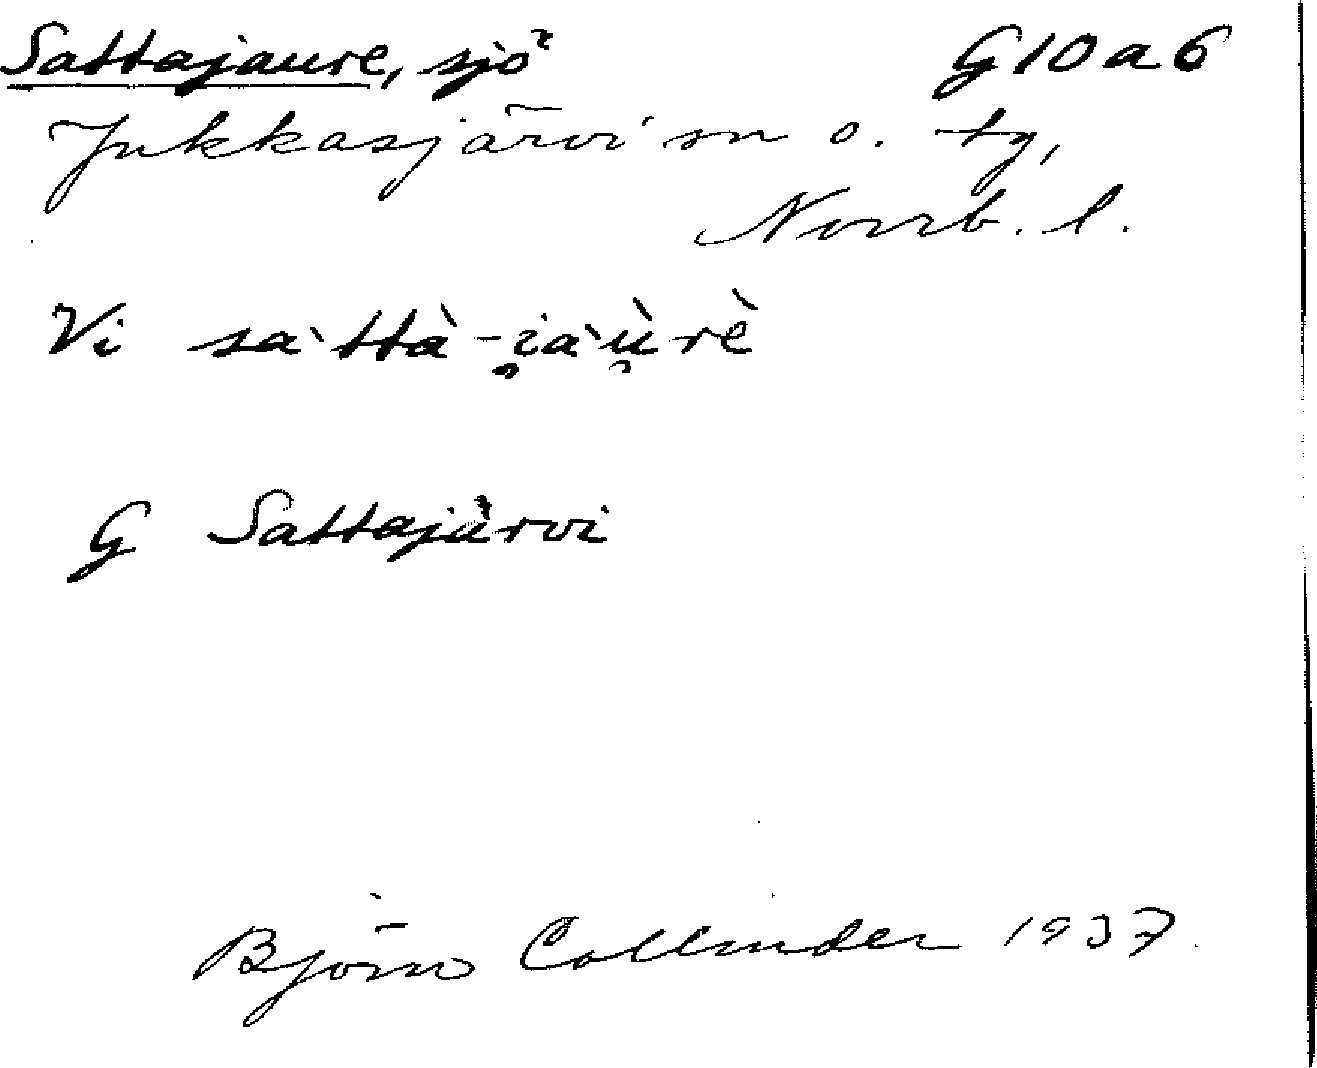 Sattajaure, sjö G10a6
Jukkasjärvi sn o. tg,
Norrb. l.
Vi sa`ttà-i̯a`ù̯rè
G Sattajärvi
Björn Collinder 1937